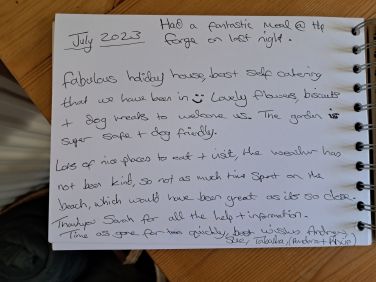 July 2023
Had a fantastic meal @ the
forge on last night.
fabulous holiday house, best self catering
that we have been in Lovely flowers, biscuits
+ dog treats to welcome us. The garden is
super safe + dog friendly.
Lots of nice places to eat + visit, the weather has
not been kind, so not as much time spent on the
beach, which would have been great as its so close.
Thankyou Sarah for all the help + information.
Time as gone far too quickly, best wishes Andrew,
Sue, Tabatha,